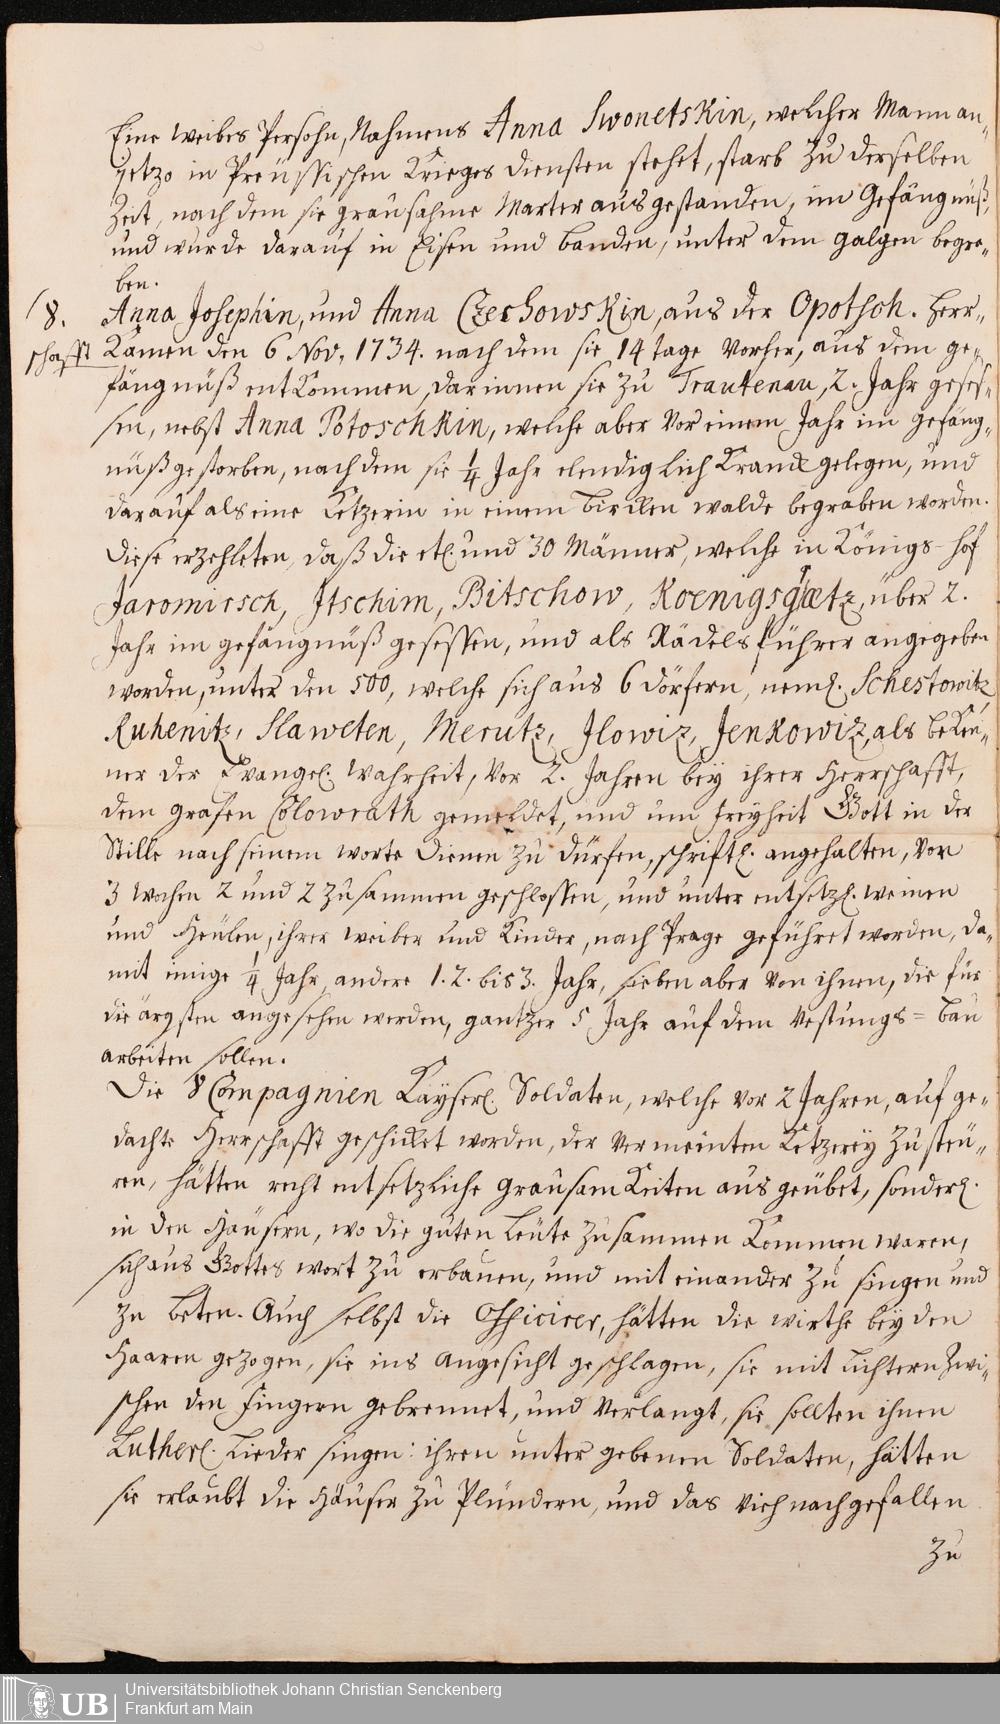 Eine weibes Persohn, Nahmens Anna Swonetskin, welcher Mann an-
jetzo in Preüssischen Krieges diensten stehet, starb zu derselben
Zeit, nach dem sie grausahme Marter ausgestanden, im Gefängnüß,
und wurde darauf in Eisen und banden, unter dem galgen begra-
ben.
8. Anna Josephin, und Anna Czechowskin, aus der Opotsch. Herr-
schafft Kamen den 6 Nov. 1734. nach dem sie 14 tage vorher, aus dem ge-
fängnüß entkommen, darinnen sie zu Trautenau, 2. Jahr gesess-
sen, nebst Anna Potoschkin, welche aber vor einem Jahr im gefäng-
nüß gestorben, nach dem sie 1/4 Jahr elendiglich Kranck gelegen, und
darauf als eine Ketzerin in einem Bircken walde begraben worden.
Diese erzehleten, daß die etl. und 30 Männer, welche in Königs-hof
Jaromirsch, Itschim, Bitschow, Koenigsgraetz, über 2.
Jahr im gefängnüß gesessen, und als Rädelsführer angegeben
worden, unter den 500, welche sich aus 6 dörfern, neml. Schestowitz
Ruhenitz, Slaweten, Merutz, Jlowiz, Jenkowiz, als beken-
ner der Evangel. Wahrheit, vor 2. Jahren bey ihrer Herrschafft,
dem grafen Colowrath gemeldet, und um freyheit Gott in der
Stille nach seinem worte dienen zu dürfen, schriftl. angehalten, vor
3 wochen 2 und 2 zusammen geschlossen, und unter entsetzl. weinen
und Heülen, ihrer weiber und Kinder, nach Prage geführet worden, da-
mit einige 1/4 Jahr, andere 1. 2. bis 3. Jahr, sieben aber von ihnen, die für
die ärgsten angesehen werden, gantzer 5 Jahr auf dem Vestungs=bau
arbeiten sollen.
Die 8 Compagnien Kayserl. Soldaten, welche vor 2 Jahren, auf ge-
dachte Herrschafft geschicket worden, der vermeinten Ketzerey zu steü-
ren, hätten recht entsetzliche grausamkeiten ausgeübet, sonderl.
in den Häusern, wo die guten leüte zusammen kommen waren,
sich aus Gottes wort zu erbauen, und mit einander zu singen und
zu beten. Auch selbst die Officirer, hätten die wirthe bey den
Haaren gezogen, sie ins angesicht geschlagen, sie mit lichtern zwi-
schen den fingern gebrennet, und verlangt, sie sollten ihnen
Lutherl. Lieder singen: ihren unter gebenen Soldaten, hätten
sie erlaubt die Häuser zu plündern, und das Vieh nach gefallen
zu
UB Universitätsbibliothek Johann Christian Senckenberg
Frankfurt am Main